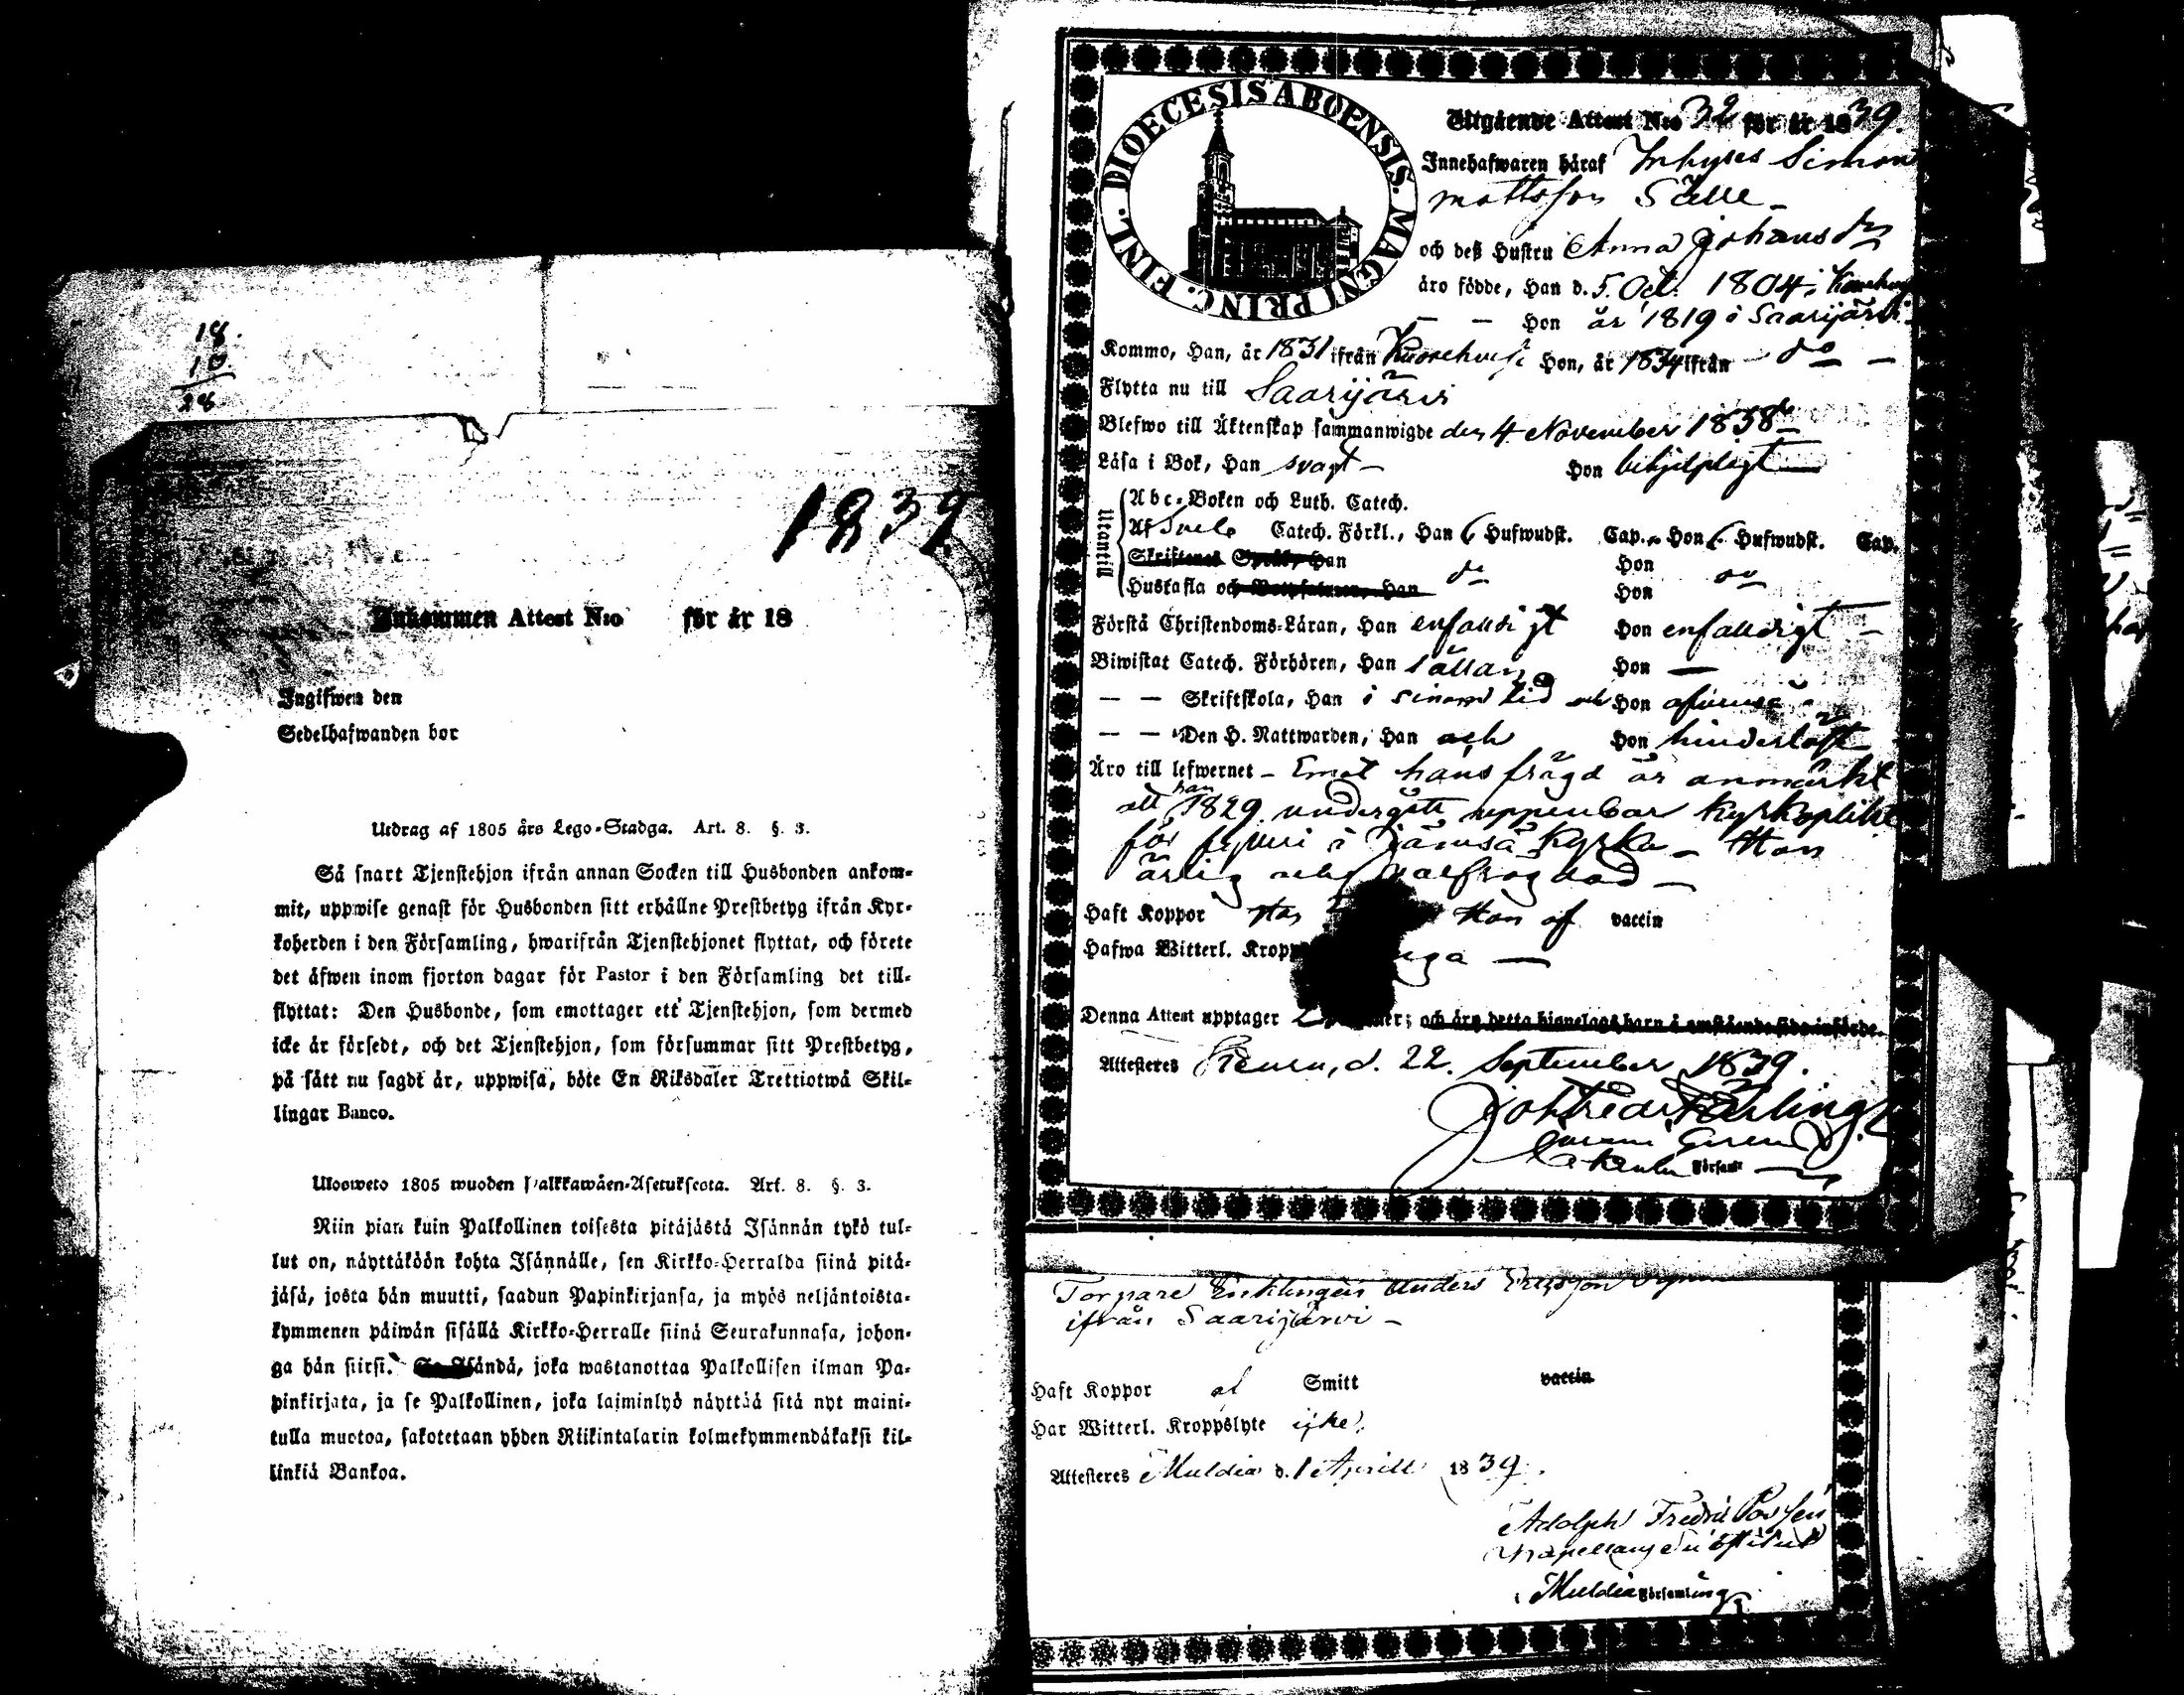 18.
10
28
1839
Inkommen Attest N:o för år 18
Ingifwen den
Sedelhafwanden bor
Utdrag af 1805 års Lego-Stadga. Art. 8. §. 3.
Så snart Tjenstehjon ifrån annan Socken till Husbonden ankom-
mit, uppwise genast för Husbonden sitt erhållne Prestbetyg ifrån Kyr-
koherden i den Församling, hwarifrån Tjenstehjonet flyttat, och förete
det äfwen inom fjorton dagar för Pastor i den Församling det till-
flyttat: Den Husbonde, som emottager ett Tjenstehjon, som dermed
icke är försedt, och det Tjenstehjon, som försummar sitt Prestbetyg,
på sätt nu sagdt är, uppwisa, böte En Riksdaler Trettiotwå Skil-
lingar Banco.
Uloosweto 1805 wuoden Palkkawäen-Asetuksesta. Art. 8. §. 3.
Niin pian kuin Palkollinen toisesta pitäjästä Isännän tykö tul-
lut on, näyttäköön kohta Isännälle, sen Kirkko-Herralda siinä pitä-
jäsä, josta hän muutti, saadun Papinkirjansa, ja myös neljäntoista-
kymmenen päiwän sisällä Kirkko-Herralle siinä Seurakunnasa, johon-
ga hän siirsi. Se Isändä, joka wastanottaa Palkollisen ilman Pa-
pinkirjata, ja se Palkollinen, joka laiminlyö näyttää sitä nyt maini-
tulla muotoa, sakotetaan yhden Riikintalarin kolmekymmendäkaksi kil-
linkiä Bankoa.
FINL. DIOECESIS ABOENSIS. MAGNI PRINC.
Utgående Attest N:o 32 för år 1839.
Innehafwaren häraf Inhyses Simon
Mattsson Sälle
och deß Hustru Anna Johansdr
äro födde, Han d. 5. Oct. 1804 i
— — Hon år 1819 i Saarijärvi.
Kommo, Han, år 1831 ifrån Kuorehvesi Hon, år 1834 ifrån do —
Flytta nu till Saarijärvi
Blefwo till Äktenskap sammanwigde den 4 November 1838
Läsa i Bok, Han svagt — Hon behjelpligt
Utantill
Abc-Boken och Luth. Catech.
Af Catech. Förkl., Han 6 Hufwudst. Cap. Hon 6 Hufwudst. Cap.
Skriftenes Han Hon
Hustafla och Han do Hon do
Förstå Christendoms-Läran, Han enfaldigt Hon enfaldigt —
Biwistat Catech. Förhören, Han sällan Hon —
— — Skriftskola, Han i sinom tid och Hon
— — Den H. Nattwarden, Han och Hon hinderlöst
Äro till lefwernet — Emot hans frägd är anmärkt
att han 1829 undergått uppenbar kyrkoplikt
för i Jämsä Kyrka — Hon
ärlig och välfrägdad —
Haft Koppor Han Hon af vaccin
Hafwa Witterl. Kropp inga —
Denna Attest upptager 2 och äro detta hjonelags barn å omstående sida införde.
Attesteres Keuru, d. 22. September 1839.
Joh Fredr Färling
Keuru Församl
Torpare Enklingen Anders Ericsson
ifrån Saarijärvi —
Haft Koppor af Smitt vaccin
Har Witterl. Kroppslyte icke
Attesteres Muldia d. 1 Aprill 1839.
Adolph Fredric
Muldia Församling